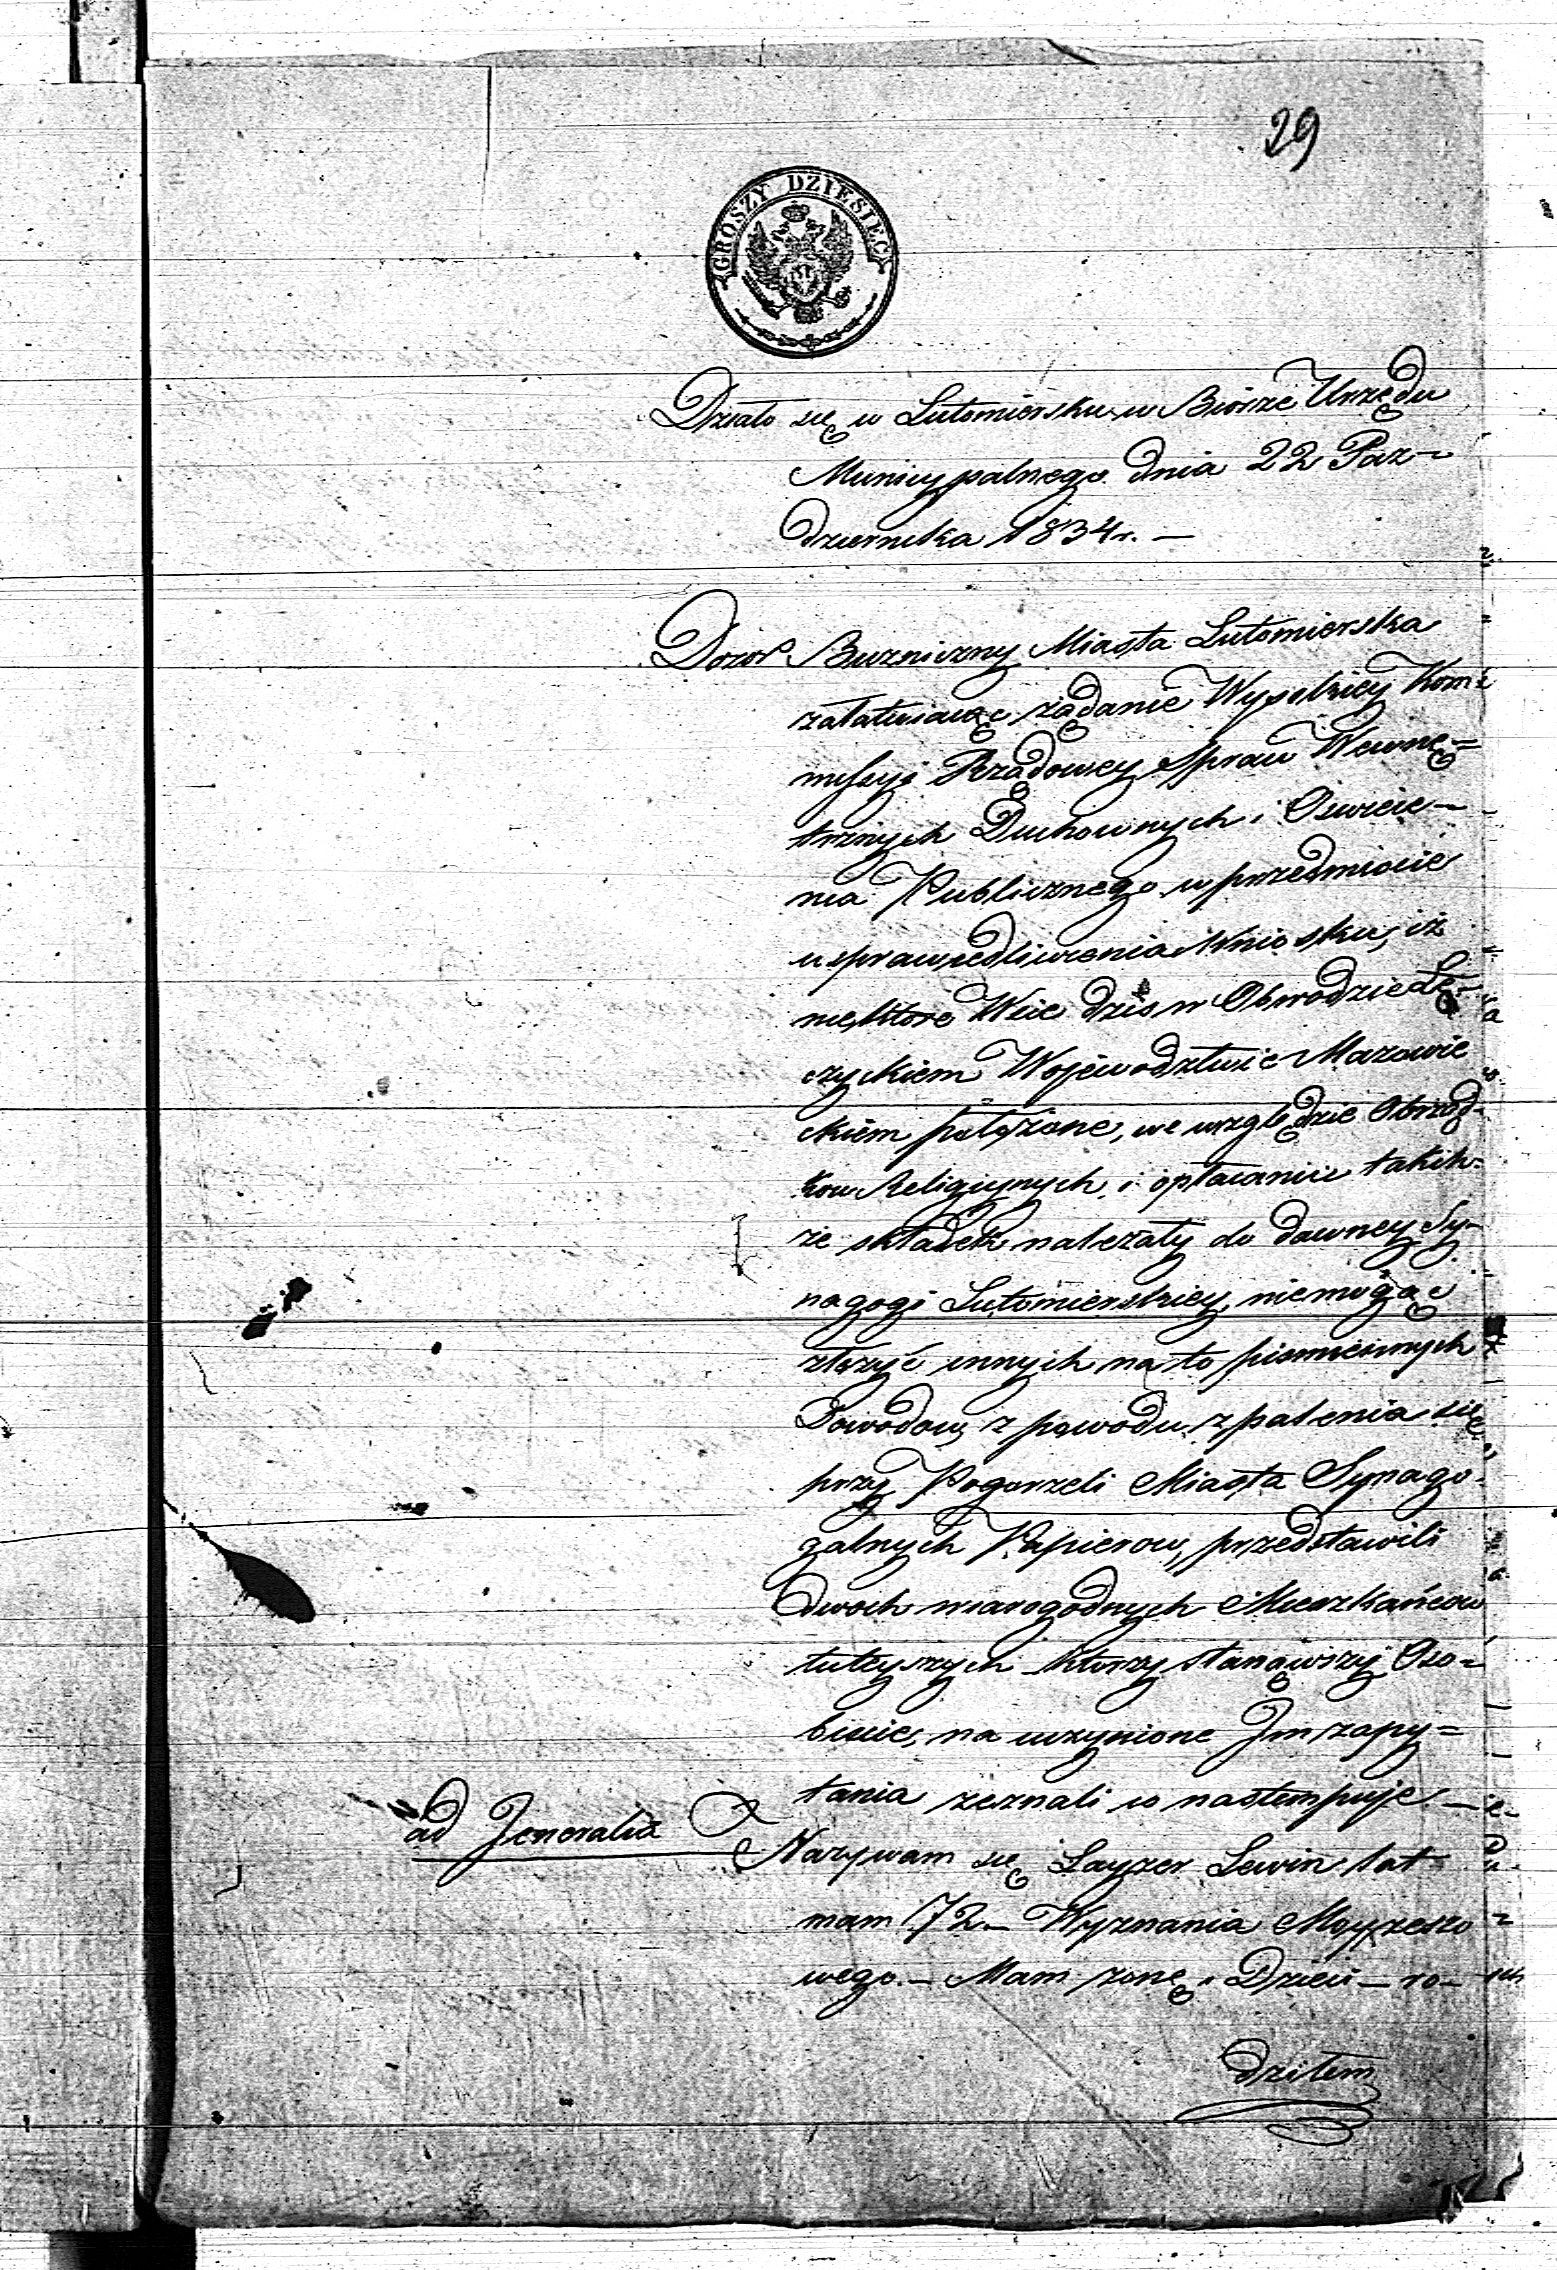 29
GROSZY DZIESIĘĆ
Działo się w Lutomiersku w Biorze Urzędu
Municypalnego dnia 22 Paz-
dziernika 1834 r. —
Dozor Buzniczny Miasta Lutomierska
załatwiaiąc żądanie Wysokiey Kom-
missyi Rządowey Spraw Wewnę=
trznych Duchownych i Oswiece-
nia Publicznego w przedmiocie
usprawiedliwienia Wniosku, iż
niektore Wsie dzis w Obwodzie Łę-
czyckiem Wojewodztwie Mazowie
ckiem położone, we względzie Obrząd-
kow Religiynych i opłacaniu takich-
że składek należały do dawney Sy-
nagogi Lutomierskiey, niemogąc
złożyć innych na to pismiennych
Dowodow, z powodu spalenia się
przy Pogorzeli Miasta Synago-
galnych Papierow, przedstawili
dwoch wiarogodnych Mieszkańcow
tuteyszych ktorzy stanąwszy Oso=
biscie, na uczynione Jm zapy=
tania zeznali co nastempuje —
ad Jeneralia
Nazywam się Layzer Lewin lat
mam 72 — Wyznania Moyżeszo
wego. — Mam żonę i Dzieci — ro-
dziłem